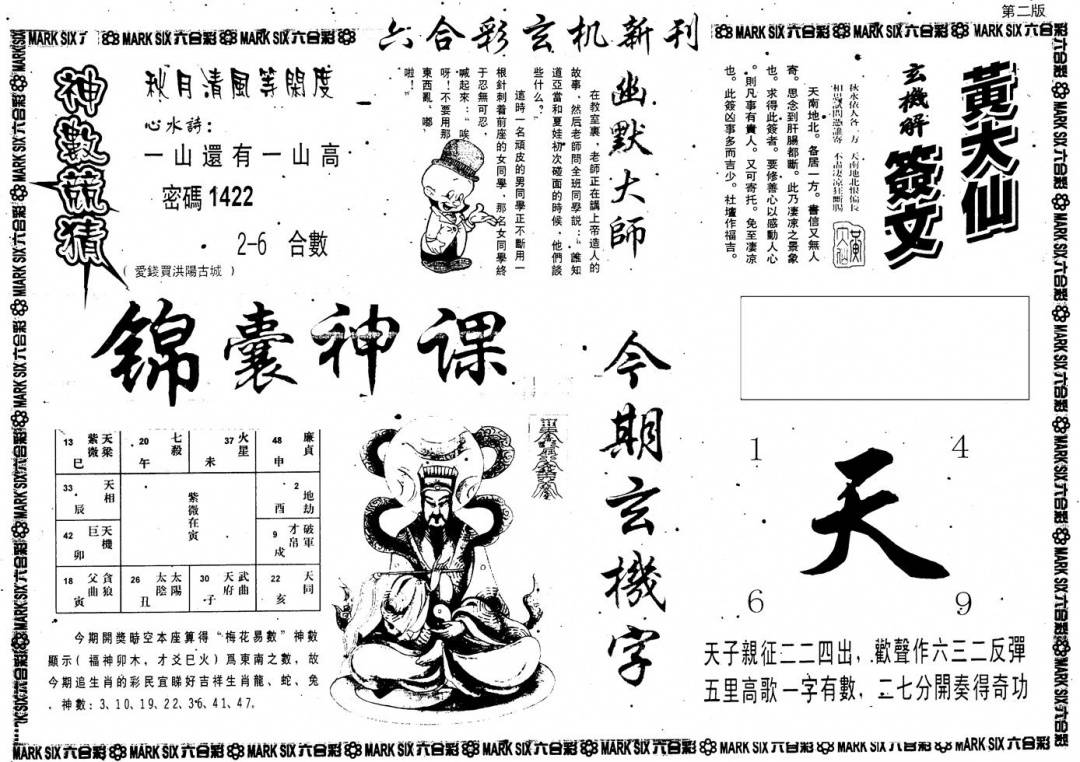 第二版
MARK SIX 六合彩 MARK SIX 六合彩 MARK SIX 六合彩
六合彩玄机新刊
MARK SIX 六合彩 MARK SIX 六合彩 MARK SIX 六合彩
黃大仙
簽文
玄機解
天南地北。各居一方。書信又無人
寄。思念到肝腸都斷。此乃凄凉之景象
也。求得此簽者。要修善心以感動人心
。則凡事有貴人。又可寄托。免至凄凉
也。此簽凶事多而吉少。杜壇作福吉。
幽默大師
在教室裏、老師正在講上帝造人的
故事、然后老師問全班同學説:“誰知
道亞當和夏娃初次碰面的時候、他們談
些什么?
這時一名頑皮的男同學正不斷用一
根針刺着前座的女同學、那名女同學終
于忍無可忍、
喊起來:“唉
呀!不要用那
東西亂、嘟
啦!
神數荒猜
秋月清風等閑度
心水詩:
一山還有一山高
密碼 1422
2-6 合數
(愛錢買洪陽古城)
锦囊神课
13 紫微 天梁 巳
20 七殺 午
37 火星 未
48 廉貞 申
33 天相 辰
紫微在寅
2 地劫 酉
42 巨 天機 卯
9 才帛 破軍 戌
18 父曲 貪狼 寅
26 太陰 太陽 丑
30 天府 武曲 子
22 天同 亥
今期開獎時空本座算得“梅花易數”神數
顯示(福神卯木,才爻巳火)爲東南之數,故
今期追生肖的彩民宜睇好吉祥生肖龍、蛇、兔
、神數:3、10、19、22、36、41、47。
今期玄機字
1 4
天
6 9
天子親征二二四出,歡聲作六三二反彈
五里高歌一字有數,二七分開奏得奇功
MARK SIX 六合彩 MARK SIX 六合彩 MARK SIX 六合彩 MARK SIX 六合彩 MARK SIX 六合彩 MARK SIX 六合彩 MARK SIX 六合彩 MARK SIX 六合彩 MARK SIX 六合彩